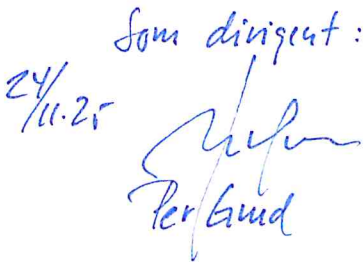 Som dirigent:
24/11.25
Per Gund